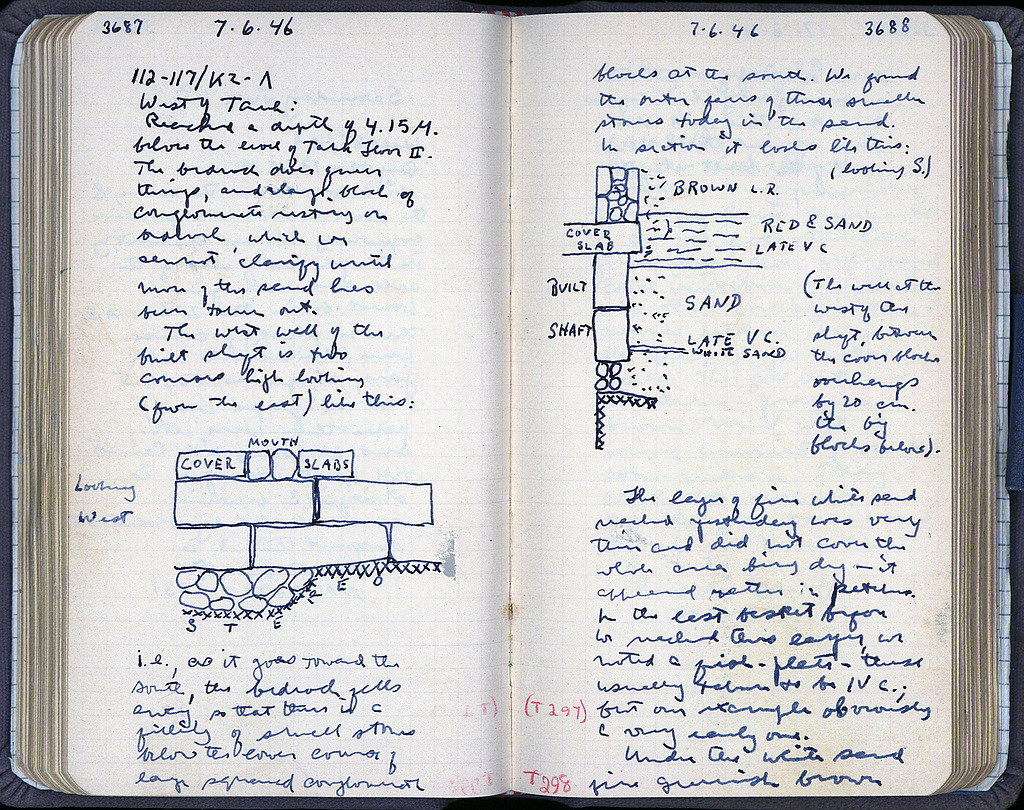 3687 7.6.46
112-117/KZ-Λ
West of Tank:
Reached a depth of 4.15 M.
below the level of Tank Floor II.
The bedrock does queer
things, and a large block of
conglomerate resting on
bedrock, which we
cannot clarify until
more of the sand has
been taken out.
The west wall of the
built shaft is two
courses high looking
(from the east) like this:
MOUTH
COVER SLABS
Looking
West
S T E R E O
i.e., as it goes toward the
south, the bedrock falls
away, so that there is a
filling of small stones
below the lower course of
large squared conglomerate
7.6.46 3688
blocks at the south. We found
the outer faces of these smaller
stones today in the sand.
In section it looks like this:
(looking S.)
BROWN L.R.
COVER
SLAB
RED & SAND
LATE V C
BUILT
SHAFT
SAND
LATE V C.
WHITE SAND
(The wall at the
west of the
shaft, between
the cover blocks
overhangs
by 20 cm.
the big
blocks below).
The layer of fine white sand
reached yesterday was very
thin and did not cover the
whole area being dug – it
appeared rather in patches.
In the last basket before
we reached this layer, we
(T 297) noted a fish-plate – these
usually taken to be IV C.;
but our example obviously
a very early one.
Under the white sand
T298 fine greenish brown